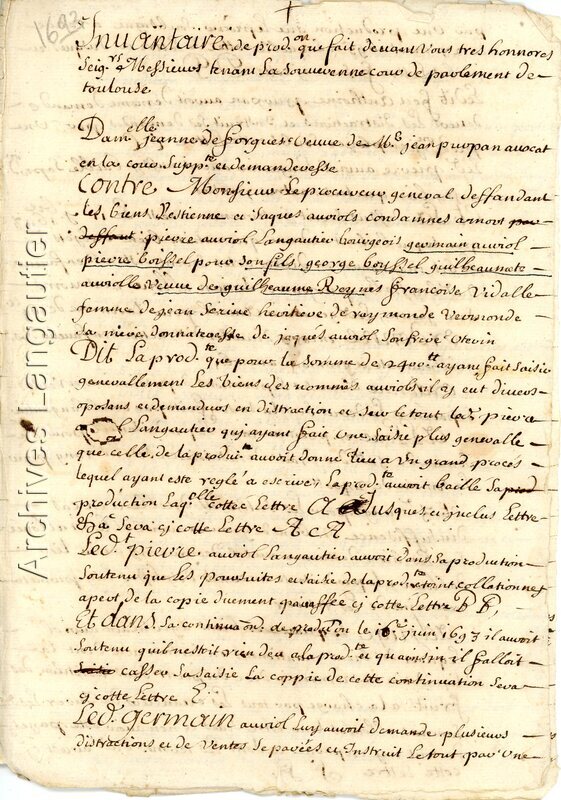 1693
Inuantaire de prod.on que fait deuant Vous tres honnores
Seig.rs Messieurs tenant La souuerenne cour de parlement de
toulouse
Dam.elle jeanne de forques Veuue de M.e jean propan auocat
en la cour Supp.te et demanderesse
Contre Monsieur Le procureur general deffandant
les biens destienne et jaques auriols condamnes a mort par
deffaut pierre auriol Langautier bourgeois germain auriol
pierre boissel pour son fils, george boyssel guilheaumete
auriolle Veuue de guilheaume Reynes françoise Vidalle
femme de jean Serine heritiere de raymonde
sa mere donnateresse de jaques auriol son frere Uterin
Dit La prod.te que pour la somme de 2400.tt ayant fait saisir
generallement Les biens des nommes auriols il y eut diuers
oposans et demandurs en distraction et seur le tout led. pierre
Langautier qui ayant fait Une saisie plus generalle
que celle de la produi.te auroit donne lieu a Un grand procés
lequel ayant este regle a escrire, La prod.te auroit baille sa prod
production Laq.elle cottee Lettre A Jusques et jnclus Lettre
Sera cj cotte Lettre A C A
Led.t pierre auriol Langautier auroit dans sa production
soutenu que Les poursuites et saisie de la prod.te collationnes
a peot, de la copie duement cj cotte Lettre B B,
Et dans sa continuaon.on de prodution le 16.e juin 1693 il auroit
soutenu quil nestoit rien deu a la prod.te et quainsin il falloit
saisie casser sa saisie La coppie de cette continuation sera
cj cotte Lettre E
Led. germain auriol Luy auroit demande plusieurs
distractions et de Ventes separées et Instruit Le tout par Une
Archives Langautier